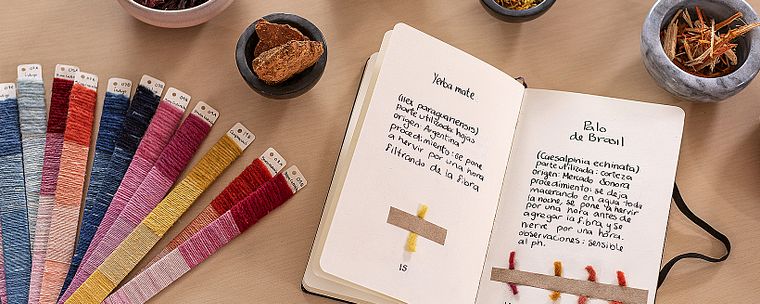 Yerba mate
(Ilex paraguanensis)
parte utilizada hojas
origen Argentina
procedimiento: se pone
a hervir por una hora
filtrando de la fibra
15
Palo
de Brasil
(Caesalpinia echinata)
parte utilizada: corteza
origen: Mercado Sonora
procedimiento: se deja
macerando en agua toda
la noche, se pone a hervir
por una hora antes de
agregar la fibra y se
hierve por una hora.
observaciones: sensible
al ph.